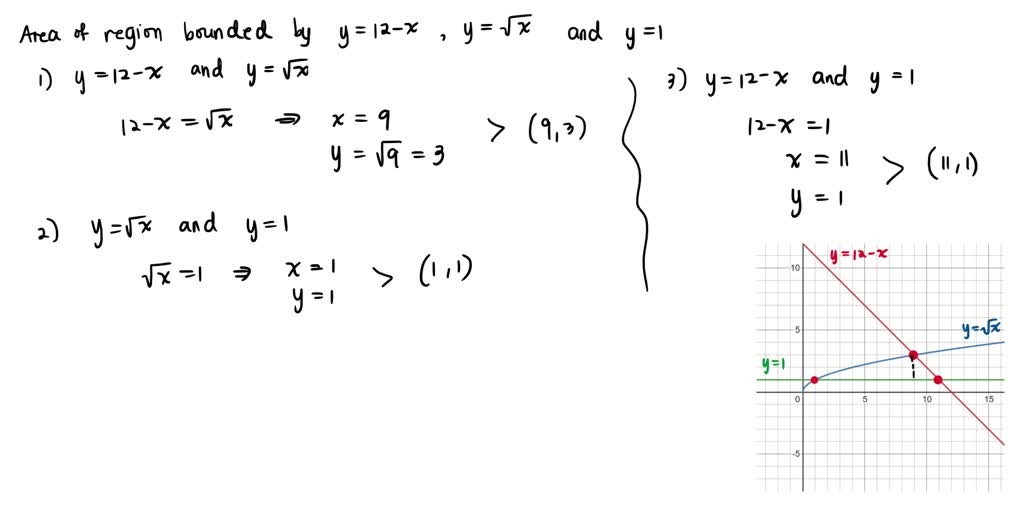 Area of region bounded by y = 12-x , y = √x and y = 1
1) y = 12-x and y = √x
12-x = √x ⇒ x = 9
y = √9 = 3 > (9,3)
2) y = √x and y = 1
√x = 1 ⇒ x = 1
y = 1 > (1,1)
3) y = 12-x and y = 1
12-x = 1
x = 11
y = 1 > (11,1)
y = 12-x
10
5
y = √x
y = 1
0
5
10
15
-5